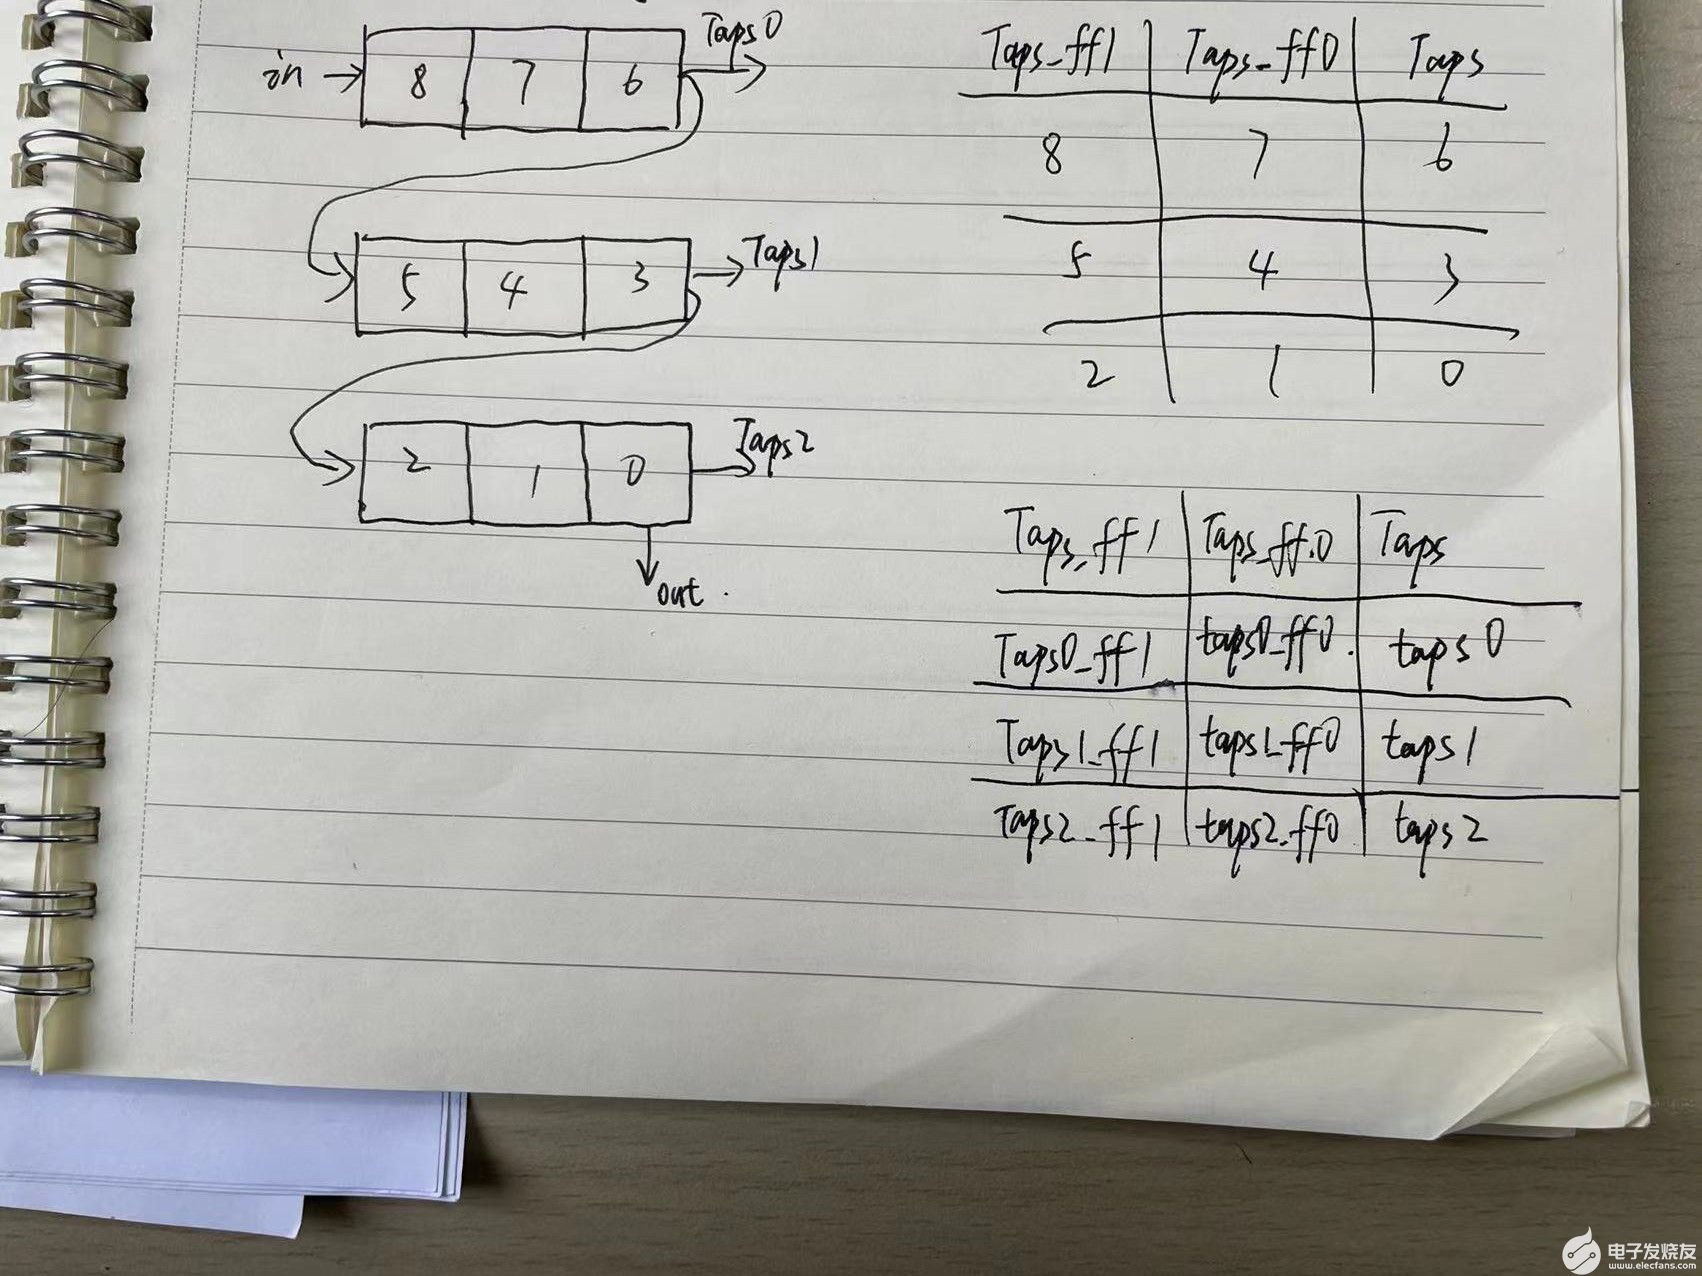 in → 8 7 6 Taps0
5 4 3 Taps1
2 1 0 Taps2
out.
Taps_ff1 Taps_ff0 Taps
8 7 6
5 4 3
2 1 0
Taps_ff1 Taps_ff0 Taps
Taps0_ff1 taps0_ff0. taps0
Taps1_ff1 taps1_ff0 taps1
Taps2_ff1 taps2_ff0 taps2
电子发烧友
www.elecfans.com